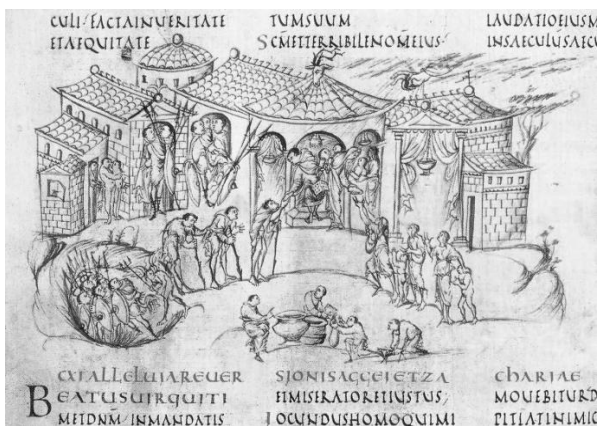 CULI·FACTAINUERITATE
ETAEQUITATE
TUMSUUM
SCMETTERRIBILENOMEIUS·
LAUDATIOEIUSM
INSAECULUSAECU
CXIALLELUIAREUER
BEATUSUIRQUITI
METDNM/INMANDATIS
SIONISAGGEIETZA
ETMISERATORETIUSTUS;
IOCUNDUSHOMOQUIMI
CHARIAE
MOUEBITURD